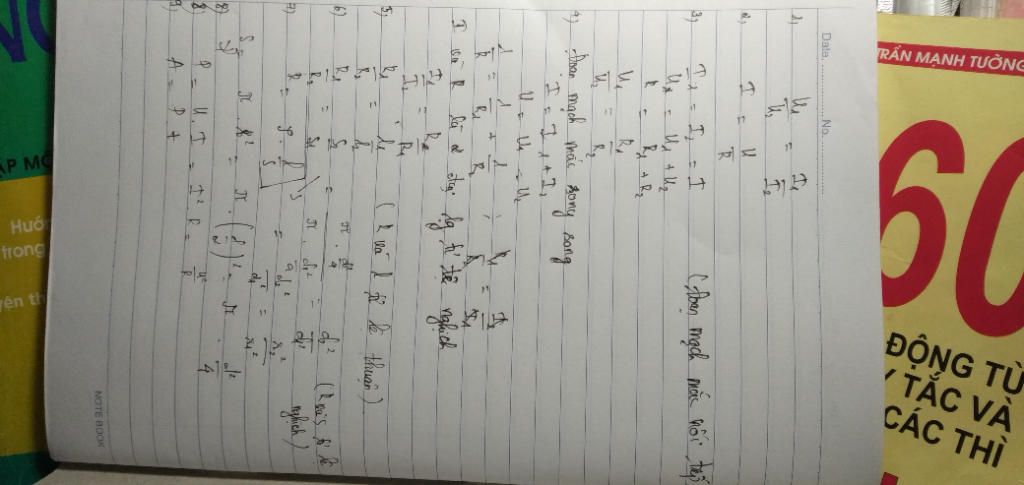 Date. No.
1) U1/U2 = I1/I2
2) I = U/R
3) I1 = I2 = I (Đoạn mạch mắc nối tiếp
U = U1 + U2
R = R1 + R2
U1/U2 = R1/R2
4) Đoạn mạch mắc song song
I = I1 + I2
U = U1 = U2
1/R = 1/R1 + 1/R2 ;
I và R là 2 đại lg tỉ lệ nghịch
I1/I2 = R2/R1
5) R1/R2 = l1/l2 (R và l tỉ lệ thuận)
6) R1/R2 = S2/S1 = (R và S tỉ lệ nghịch)
7) R = ρ . l/S
8) S = π . r² = π . (d/2)² = π . d²/4
8) P = U . I = I² . R = U²/R
9) A = P . t
NOTE BOOK
TRẦN MẠNH TƯỜNG
60
ĐỘNG TỪ
TẮC VÀ
CÁC THÌ
Hướ
trong